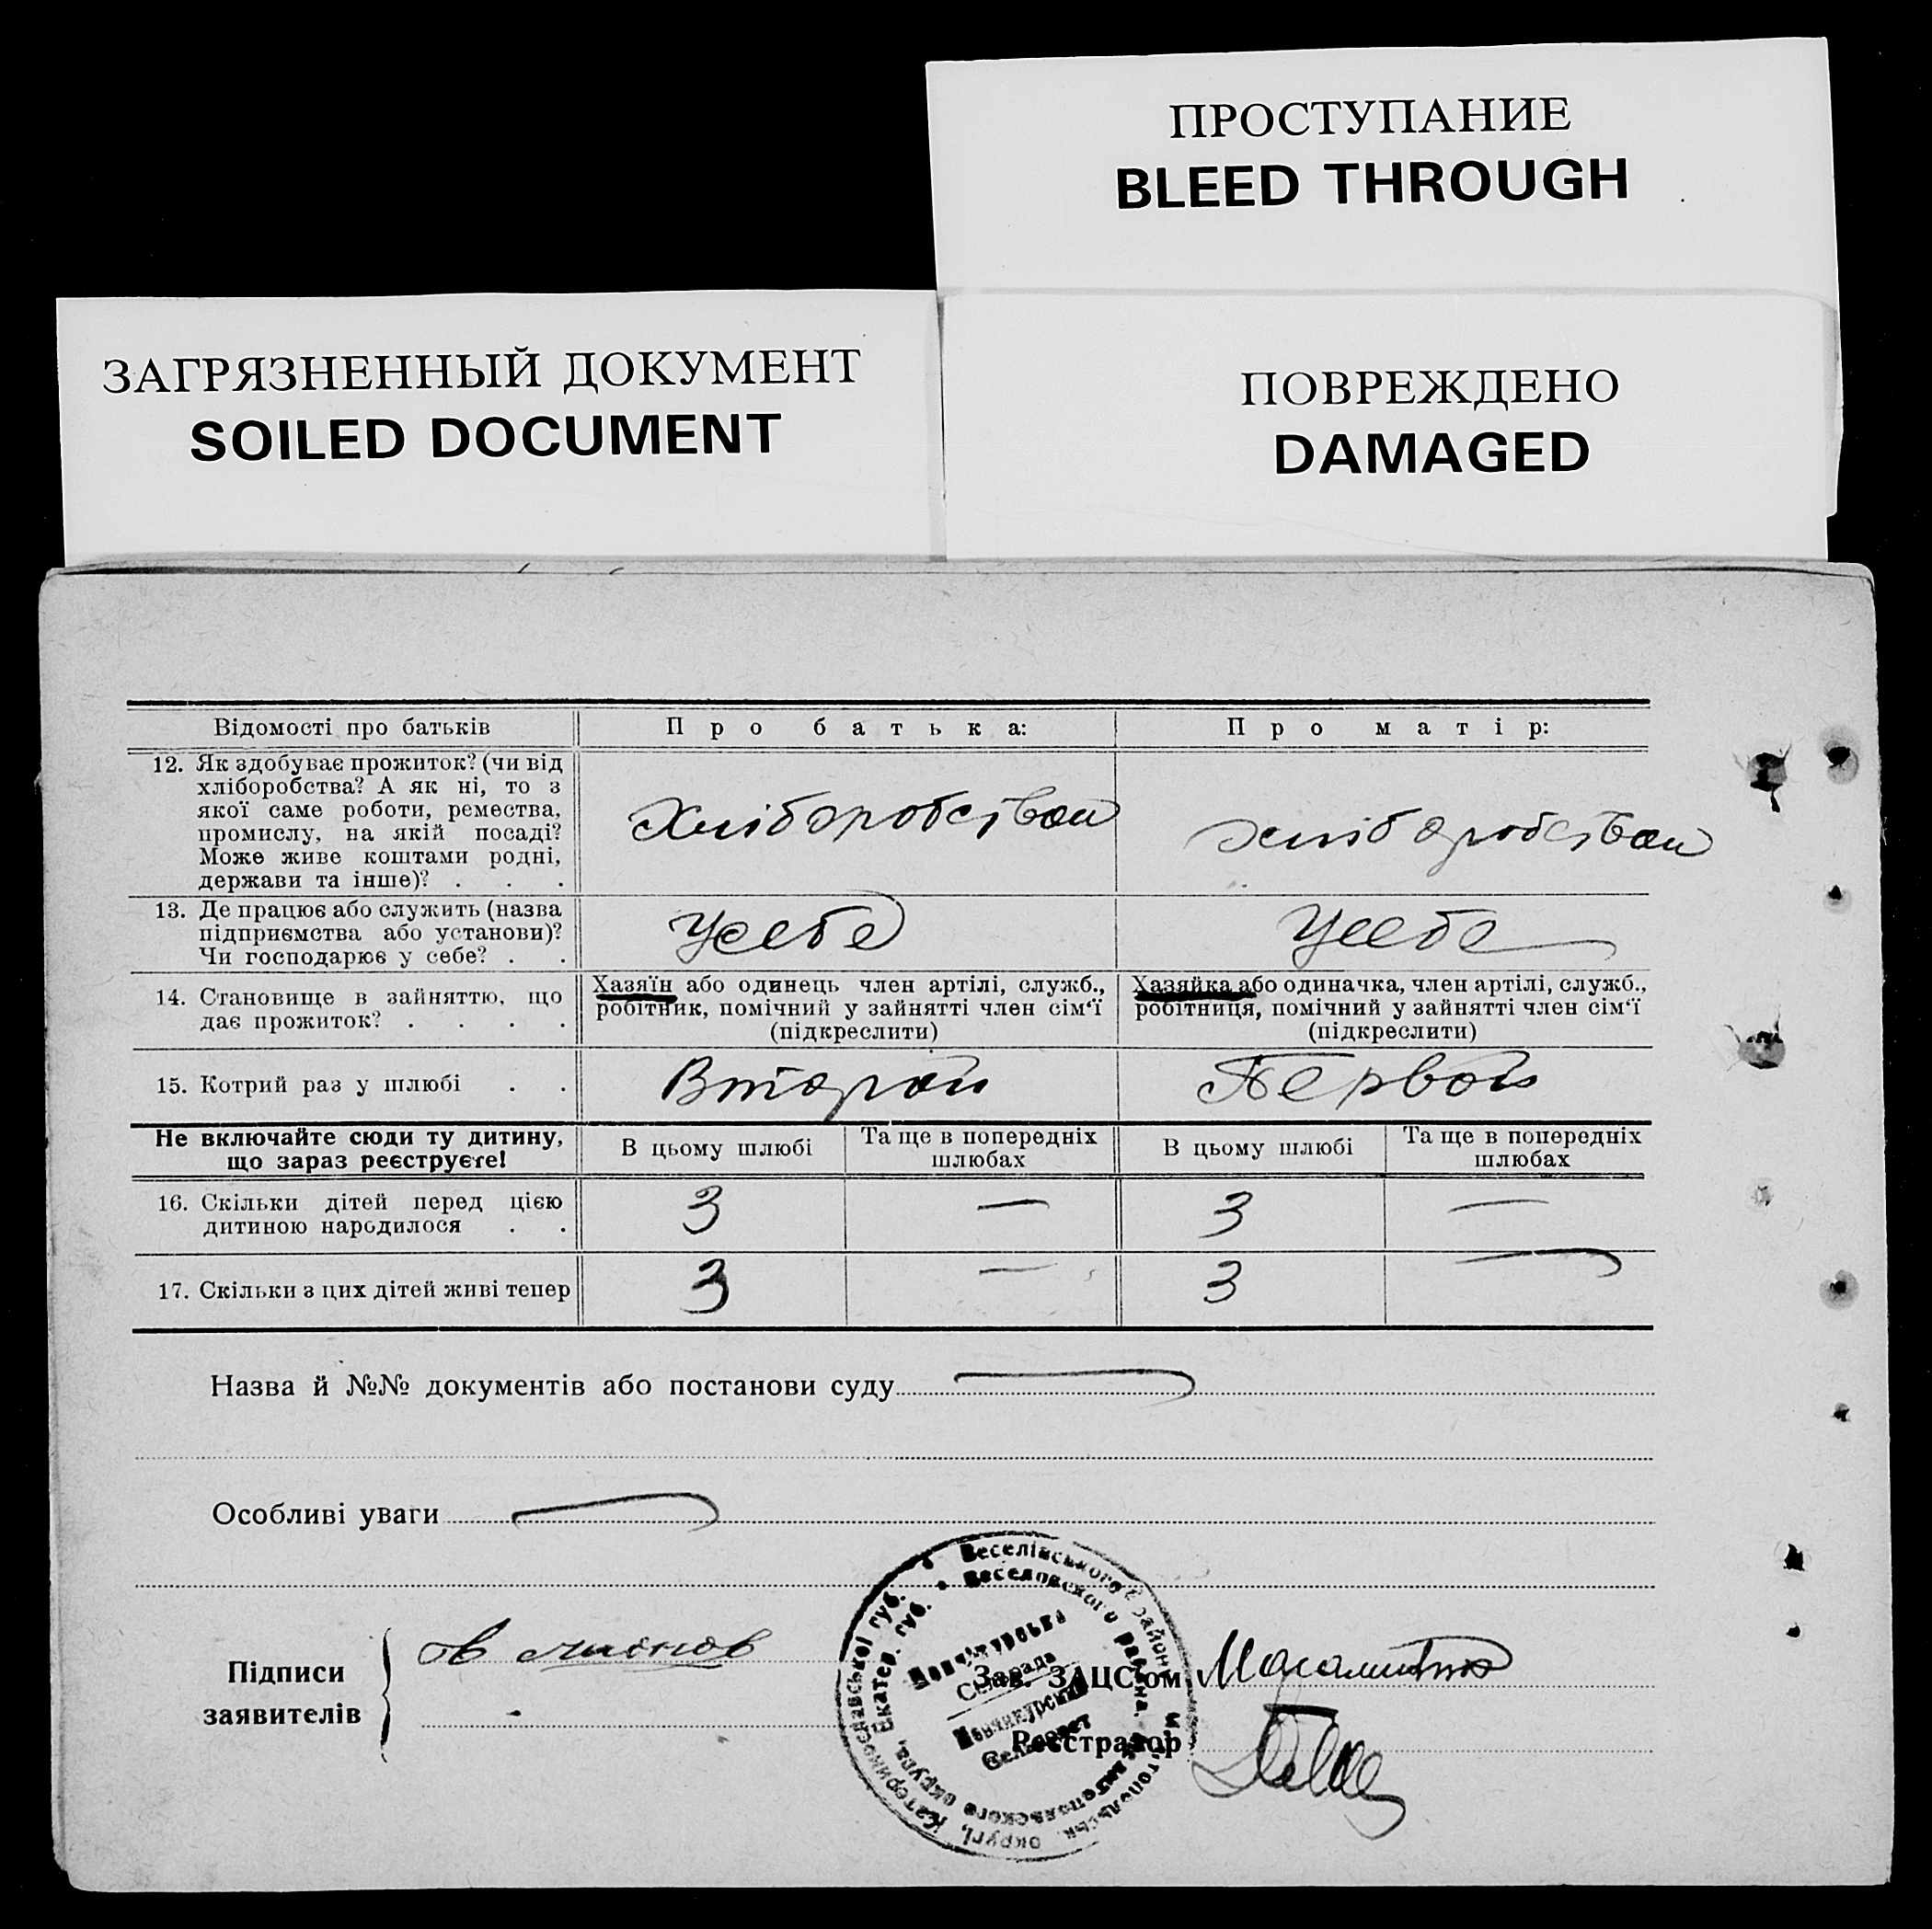 ПРОСТУПАНИЕ
BLEED THROUGH
ЗАГРЯЗНЕННЫЙ ДОКУМЕНТ
SOILED DOCUMENT
ПОВРЕЖДЕНО
DAMAGED
Відомості про батьків
Про батька:
Про матір:
12. Як здобуває прожиток? (чи від
хліборобства? А як ні, то з
якої саме роботи, ремества,
промислу, на якій посаді?
Може живе коштами родні,
держави та інше)? . . .
Хліборобствои
хліборобствои
13. Де працює або служить (назва
підприємства або установи)?
Чи господарює у себе? . .
Усебе
Усебе
14. Становище в зайняттю, що
дає прожиток? . . . .
Хазяїн або одинець член артілі, служб.,
робітник, помічний у зайнятті член сім‘ї
(підкреслити)
Хазяйка або одиначка, член артілі, служб.,
робітниця, помічний у зайнятті член сім‘ї
(підкреслити)
15. Котрий раз у шлюбі . .
Второй
Первой
Не включайте сюди ту дитину,
що зараз реєструєте!
В цьому шлюбі
Та ще в попередніх
шлюбах
В цьому шлюбі
Та ще в попередніх
шлюбах
16. Скільки дітей перед цією
дитиною народилося . .
3 — 3 —
17. Скільки з цих дітей живі тепер
3 — 3 —
Назва й №№ документів або постанови суду
Особливі уваги
Підписи
заявителів
Зав. ЗАЦС‘ом
Реєстратор
Веселівського району, Мелітопольськ. округі, Катеринославської губ.
Веселовского района, Мелитопольского округа, Екатер. губ.
Сельрада
Сельсовет